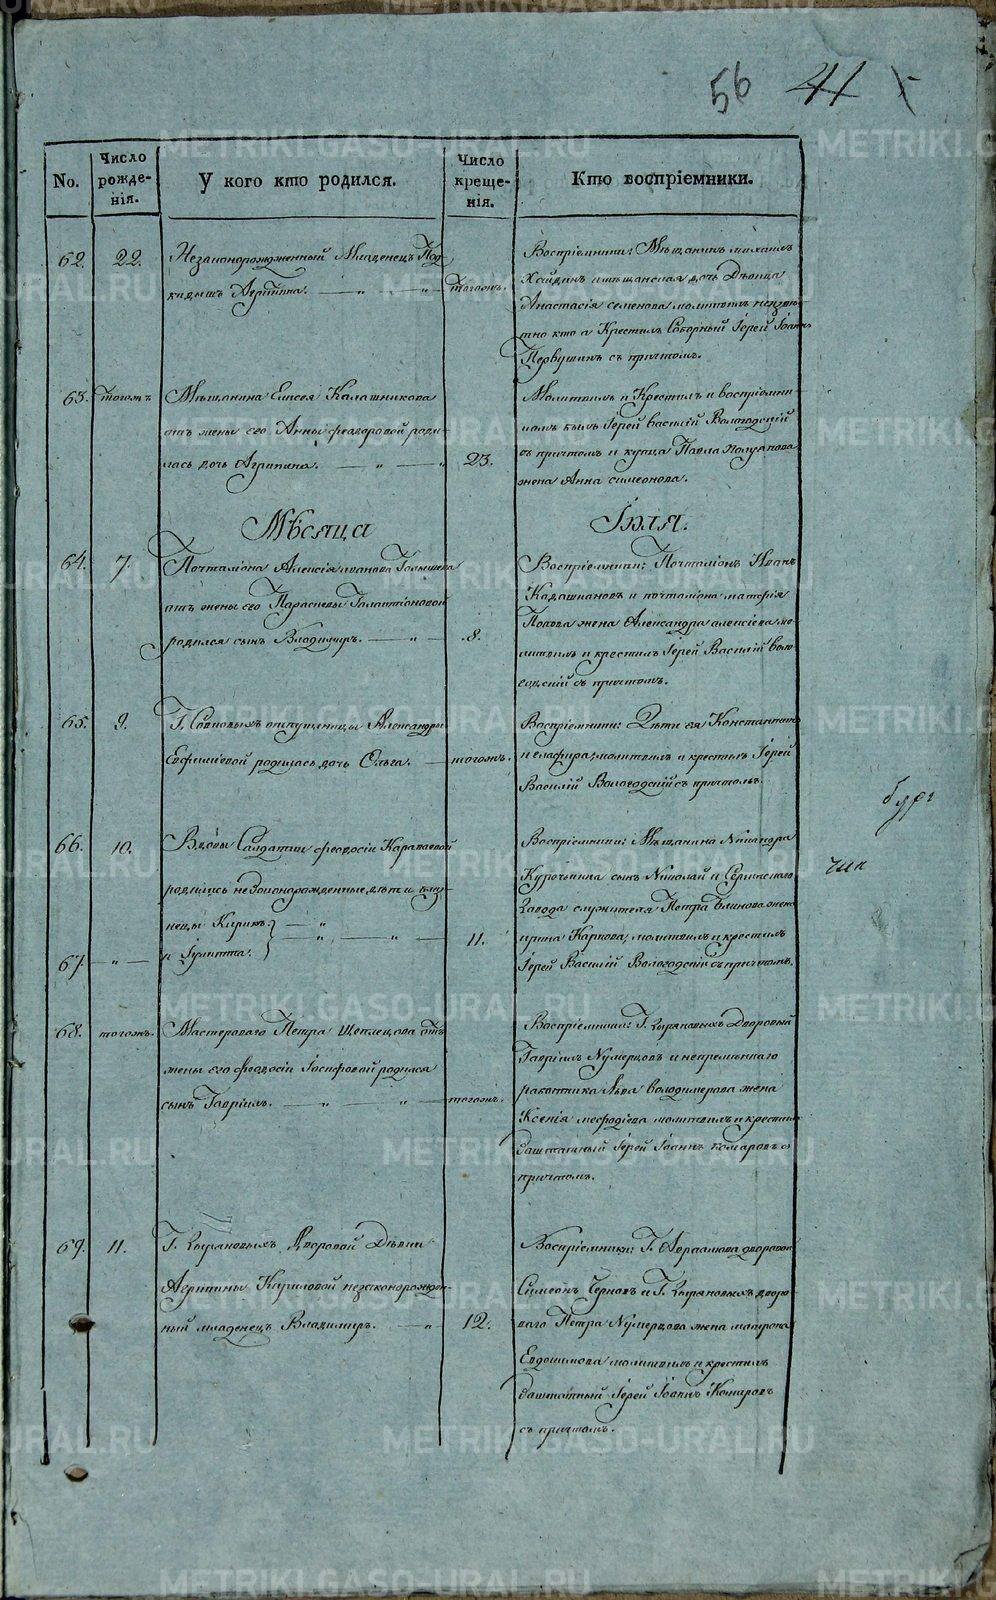 56 41
No.
Число рожде-нія.
У кого кто родился.
Число креще-нія.
Кто воспріемники.
62.
22.
Незаконорожденный Младенецъ Под
кидышъ Агрипина.
тогожъ.
Воспріемники: Мѣщанинъ михаилъ
имѣщанская дочь Дѣвица
Анастасія семенова молитвилъ неизвѣ
тно кто а Крестилъ Соборный Іерей Іоаннъ
Первушинъ съ причтомъ.
63.
тогожъ
Мѣщанина Елисея Калашникова
отъ жены его Анны феодоровой роди-
лась дочь Агрипина.
23.
Молитвилъ и Крестилъ и воспріемни
комъ былъ Іерей василій Вологодскій
съ причтомъ и купца Павла
жена Анна симеонова.
Мѣсяца
Іюля.
64.
7.
Почталіона Алексія иванова Голышева
отъ жены его Парасковьи Галактіоновой
родился сынъ Владимиръ.
8.
Воспріемники: Почталіонъ Иванъ
и почталіона матфія
Попова жена Александра алексіева мо-
литвилъ и крестилъ Іерей Василій воло-
годскій съ причтомъ.
65.
9.
Г. отпущеницы Александры
Евфиміевой родилась дочь Ольга.
тогожъ.
Воспріемники: Дѣти ея Константинъ
и глафира, молитвилъ и крестилъ Іерей
Василій Вологодскій съ причтомъ.
66.
10.
Вдовы Салдатки феодосіи Караваевой
родились незаконорожденные дѣти близ-
нецы Кирикъ
67.
и Іулитта.
11.
Воспріемники: Мѣщанина Никандра
Курочкина сынъ Николай и Сергинскаго
Завода служителя Петра Блинова жена
ирина Карпова, молитвилъ и крестилъ
Іерей Василій Вологодскій съ причтомъ.
68.
тогожъ.
Мастероваго Петра Щеплецова отъ
жены его феодосіи Іосифовой родился
сынъ Гавріилъ.
тогожъ.
Воспріемники: Г. Зыряновыхъ Дворовый
Гавріилъ Нумерцовъ и непремѣннаго
работника Льва володимерова жена
Ксенія мефодіева молитвилъ и крестилъ
заштатный Іерей Іоаннъ Комаровъ съ
причтомъ.
69.
11.
Г. Зыряновыхъ Дворовой Дѣвки
Агрипины Кириловой незаконорожден-
ный младенецъ Владимиръ.
12.
Воспріемники: Г. дворовой
Симеонъ Черновъ и Г. Зыряновыхъ дворо-
ваго Петра Нумерцова жена матрона
Евдокимова молитвилъ и крестилъ
заштатный Іерей Іоаннъ Комаровъ
съ причтомъ.
METRIKI.GASO-URAL.RU